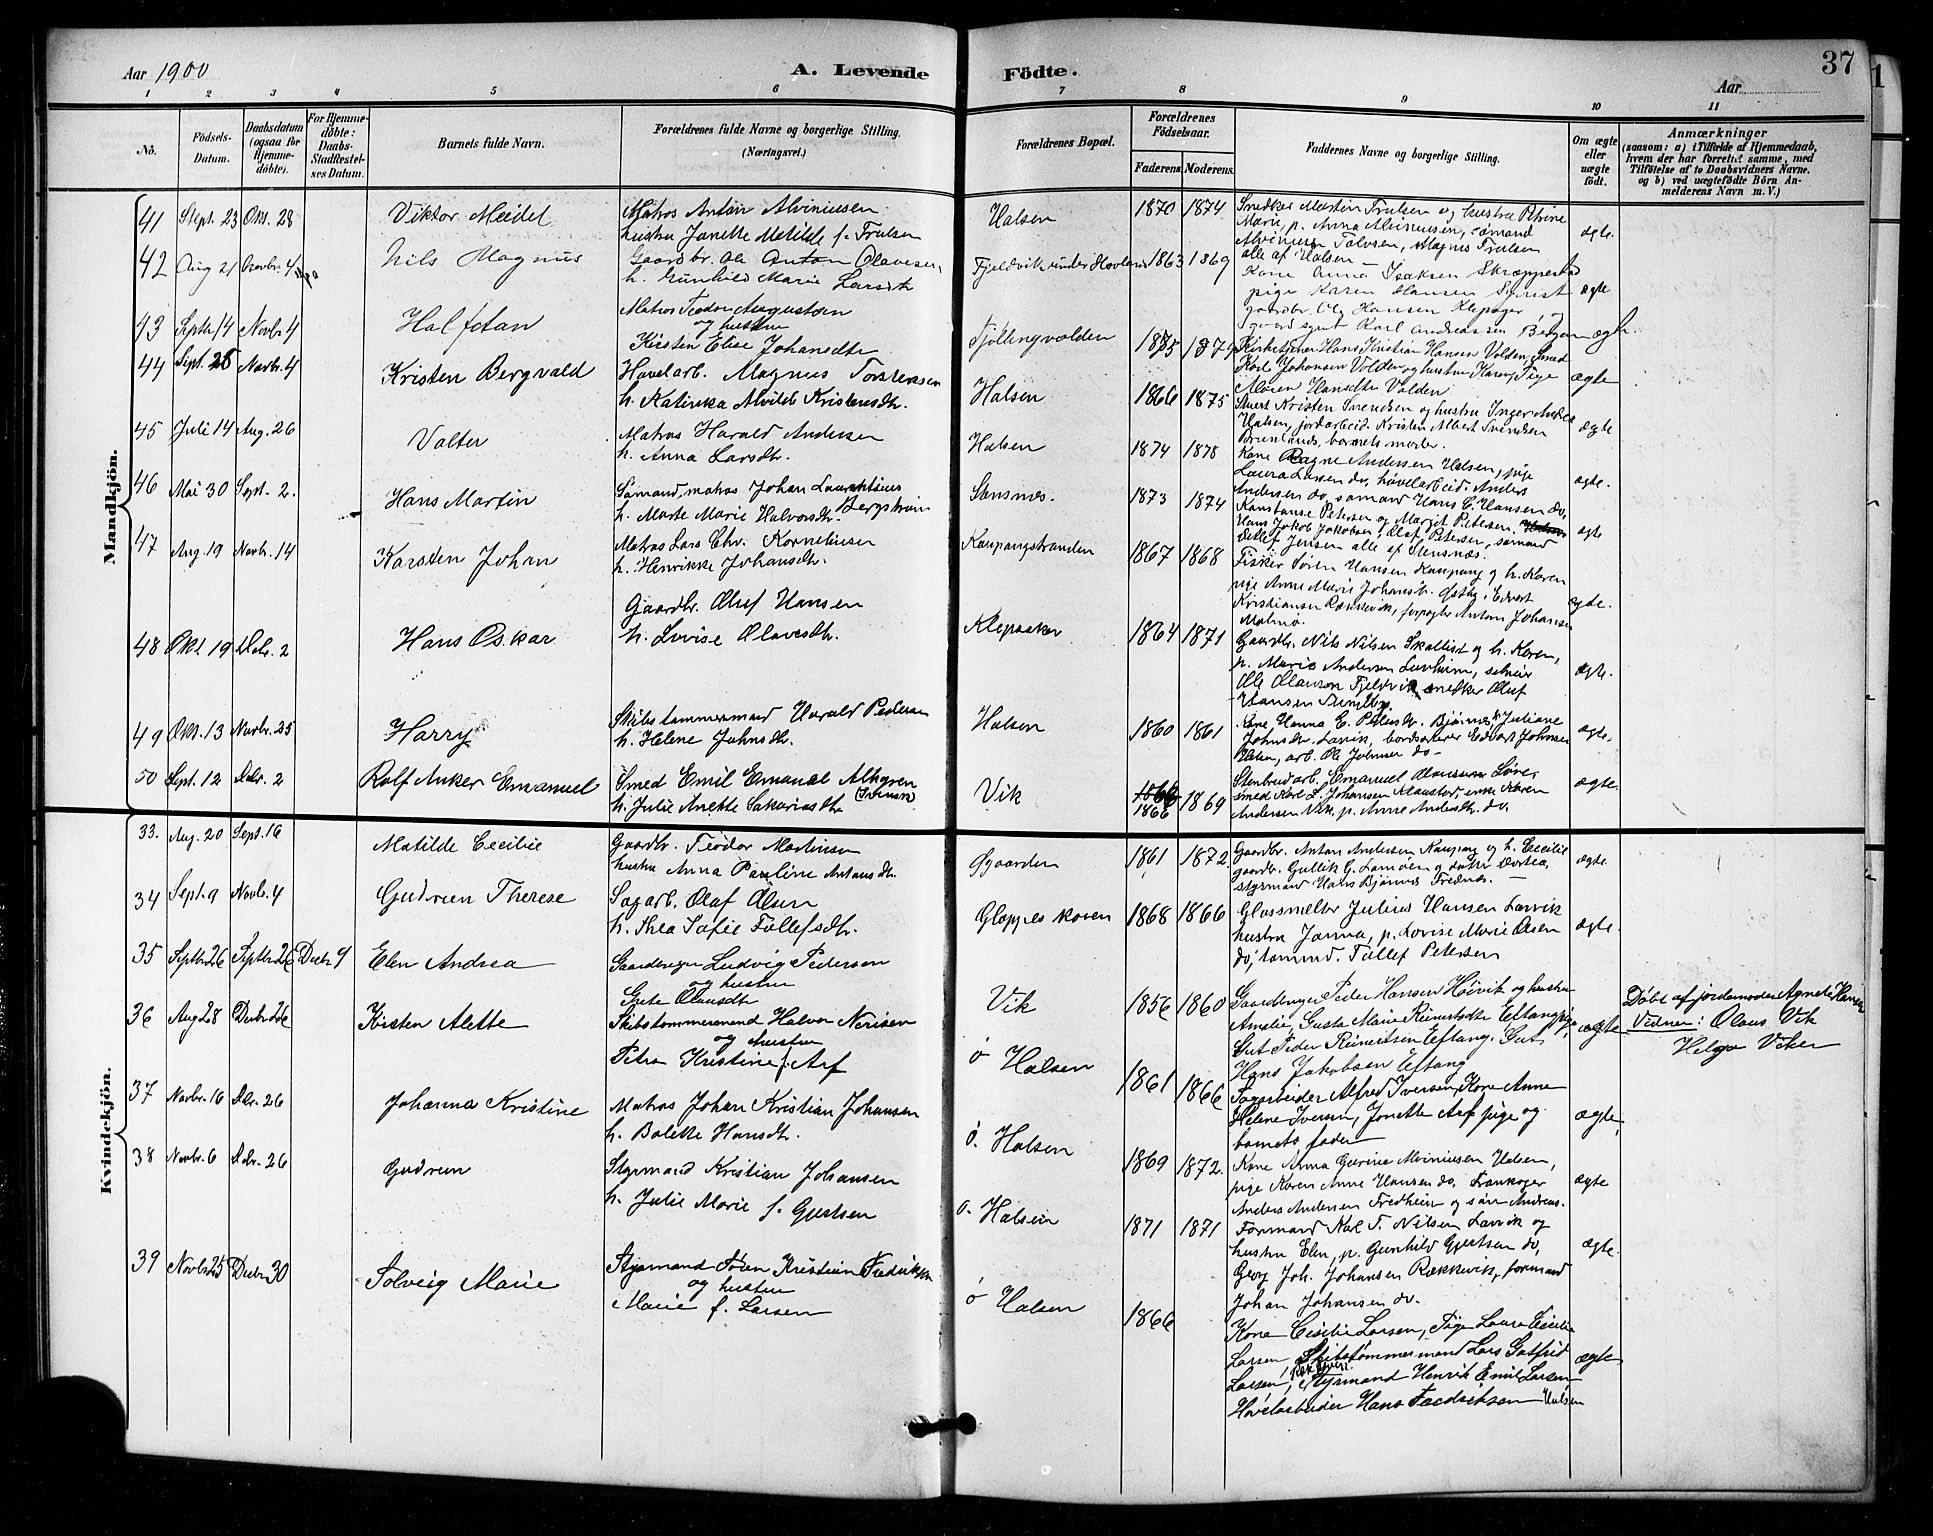 Aar 1900
A. Levende Födte.
37
Aar
1 2 3 4 5 6 7 8 9 10 11
No.
Födsels-Datum.
Daabsdatum (ogsaa for Hjemme-döbte).
For Hjemme-döbte: Daabs-Stadfæstel-ses Datum.
Barnets fulde Navn.
Forældrenes fulde Navne og borgerlige Stilling.
(Næringsvei.)
Forældrenes Bopæl.
Forældrenes Födselsaar.
Faderens. Moderens.
Faddernes Navne og borgerlige Stilling.
Om ægte eller uægte födt.
Anmærkninger
(saasom: a) i Tilfælde af Hjemmedaab, hvem der har forrettet samme, med Tilföielse af to Daabsvidners Navne, og b) ved uægtefödte Börn An-melderens Navn m. V.)
Mandkjön.
41 Sept. 23 Okt. 28 Viktor Meidel Matros Anton Alviniussen Halsen 1870 1874 Snedker Martin Trulsen og hustru Petrine
hustru Janette Matilde f. Trulsen
Marie, p. Anna Alviniussen, sømand
Alviniussen Talvsen, Magnus Trulsen ægte.
alle af Halsen
42 Aug 21 Novbr. 4 Nils Magnus Gaardbr. Ole Anton Olavesen Fjeldvik under Hovland 1863 1869
h. Gunhild Marie Larsdtr
Kone Anna Isaksen Skreppestad
pige Karen Hansen ægte
gaardbr. Ole Hansen Klepåger
gaardsgut Karl Andreassen Bergan
43 Septbr 14 Novbr. 4 Halfdan Matros Teodor Augustsen Tjöllingvolden 1875 1879 ægte.
og hustru
Kirsten Elise Johansdtr
Kirketjener Hans Kristian Hansen Volden, Smed
Karl Johansen Volden og hustru Karen, Pige
Maren Hansdtr Volden
44 Sept. 25 Novbr. 4 Kristen Bergvald Høvelarb. Magnus Torstensen Halsen 1866 1875 ægte
h. Katinka Alvilde Kristensdtr.
Stuert Kristen Svendsen og hustru Inger
Halsen, jordarbeid. Kristen Albert Svendsen
Brunlanes, barnets moder.
45 Juli 14 Aug. 26 Valter Matros Harald Andersen Halsen 1874 1878 ægte
h. Anna Larsdtr.
Kone Ragne Andersen Halsen, pige
Laura Larsen do, høvelarbeid. Anders
Andersen do, sømand Hans C. Hansen do,
46 Mai 30 Sept. 2. Hans Martin Sømand, matros Johan Laurentius Bergstrøm Stensnæs. 1873 1874 ægte.
h. Marte Marie Halvorsdtr.
Konstanse Petersen og Margit Petersen,
Hans Jakob Jakobsen, Olaf Petersen, sømand
Detlef Jensen alle af Stensnæs.
47 Aug. 19 Novbr. 14 Karsten Johan Matros Lars Chr. Korneliussen Kaupangstranden 1867 1868 ægte
h. Henrikke Johansdtr.
Fisker Søren Hansen Kaupang og h. Karen
pige Anne Marie Johansdtr. Østby, Edvart
Kristiansen Rækkevik, forpagter Anton Johansen
Malmø.
48 Okt. 19 Debr. 2 Hans Oskar Gaardbr. Oluf Hansen Klepaaker 1864 1871 ægte.
h. Lovise Olavesdtr.
Gaardbr. Nils Nilsen Skallist og h. Karen,
p. Marie Andersen
Ole Olausen Fjeldvik snedker Oluf ægte.
Hansen Sundby.
49 Okt. 13 Novbr. 25 Harry Skibstømmermand Harald Pedersen Halsen 1860 1861 ægte.
h. Helene Johnsdtr.
Kone Hanna E. Bjønnes, Juliane
Johnsdtr. Larvik, Edvart Johnsen
Halsen, arb. Ole Johnsen do
50 Sept. 12 Debr. 2 Rolf Anker Emanuel Smed Emil Emanuel Alhgren (Svensk) Vik 1866 1866 1869 ægte
h. Julie Anette Sakariasdtr.
Stenbrudarb. Emanuel Clausson Løve,
smed Karl L. Johansen, enke Karen
Andersen Vik, p. Anne Andersdtr. do.
Kvindekjön.
33. Aug. 20 Sept. 16 Matilde Cecilie Gaardbr. Teodor Martinsen Øgaarden 1861 1872 ægte
hustru Anna Pauline Antonsdtr.
Gaardbr. Anton Andersen Kaupang og h. Cecilie
gaardbr. Gullik G. Lamøen og Dortea,
styrmand Hans Bjønnes Frednæs.
34 Sept. 9 Novbr. 4 Gudrun Therese Sagarb. Olaf Olsen Gloppeskoven 1868 1866 ægte.
h. Thea Sofie Tollefsdtr.
Glassmelter Julius Hansen Larvik
hustru Janna, p. Lovise Marie Olsen
do, tømmd. Tollef Petersen
35 Septbr 26 Septbr 26 Decbr 9 Elen Andrea Gaardeier Ludvig Pedersen Vik 1856 1860 ægte
og hustru
Grete Olausdtr
Gaardeier Peder Hansen Høivik og hustru
Amalie, Gusta Marie Reinertsdtr Eftang pige,
Gut Peder Reinertsen Eftang. Gut
Hans Jakobsen Eftang
Döbt af jordemoder Agnete Hansen
Vidner: Olaus Vik
Helga Viker
36 Aug 28 Decbr 26 Kirsten Alette Skibstømmermand Halvor Nerisen ø Halsen 1861 1866 ægte,
og hustru
Petra Kristine f. Arf
Sagarbeider Alfred Iversen, Kone Anne
Helene Iversen, Jonette Arf pige og
barnets fader
37 Novbr. 16 Debr. 26 Johanna Kristine Matros Johan Kristian Johansen ø. Halsen 1869 1872. ægte
h. Bolette Hansdtr.
Kone Anna Gurine Alviniusen Halsen,
pige Karen Anne Hansen do, Trankoger
Anders Andersen Fredheim og søn Andreas.
38 Novbr. 6 Debr. 26 Gudrun Styrmand Kristian Johansen ø. Halsen 1871 1871 ægte.
h. Julie Marie f. Gjertsen
Formand Karl T. Nilsen Larvik og
hustru Elen, p. Gunhild Gjertsen do,
Georg Joh. Johansen Rækkevik, formand
Johan Johansen do.
39 Novbr 25 Decbr 30 Solveig Marie Styrmand Søren Kristian Fredriksen ø Halsen 1866 ægte
og hustru
Marie f. Larsen
Kone Cicilie Larsen, Pige Laura Cecilie
Larsen, Skibstømmermand Lars Gotfrid
Larsen, Styrmand Henrik Emil Larsen
Høvelarbeider Hans Fredriksen Halsen